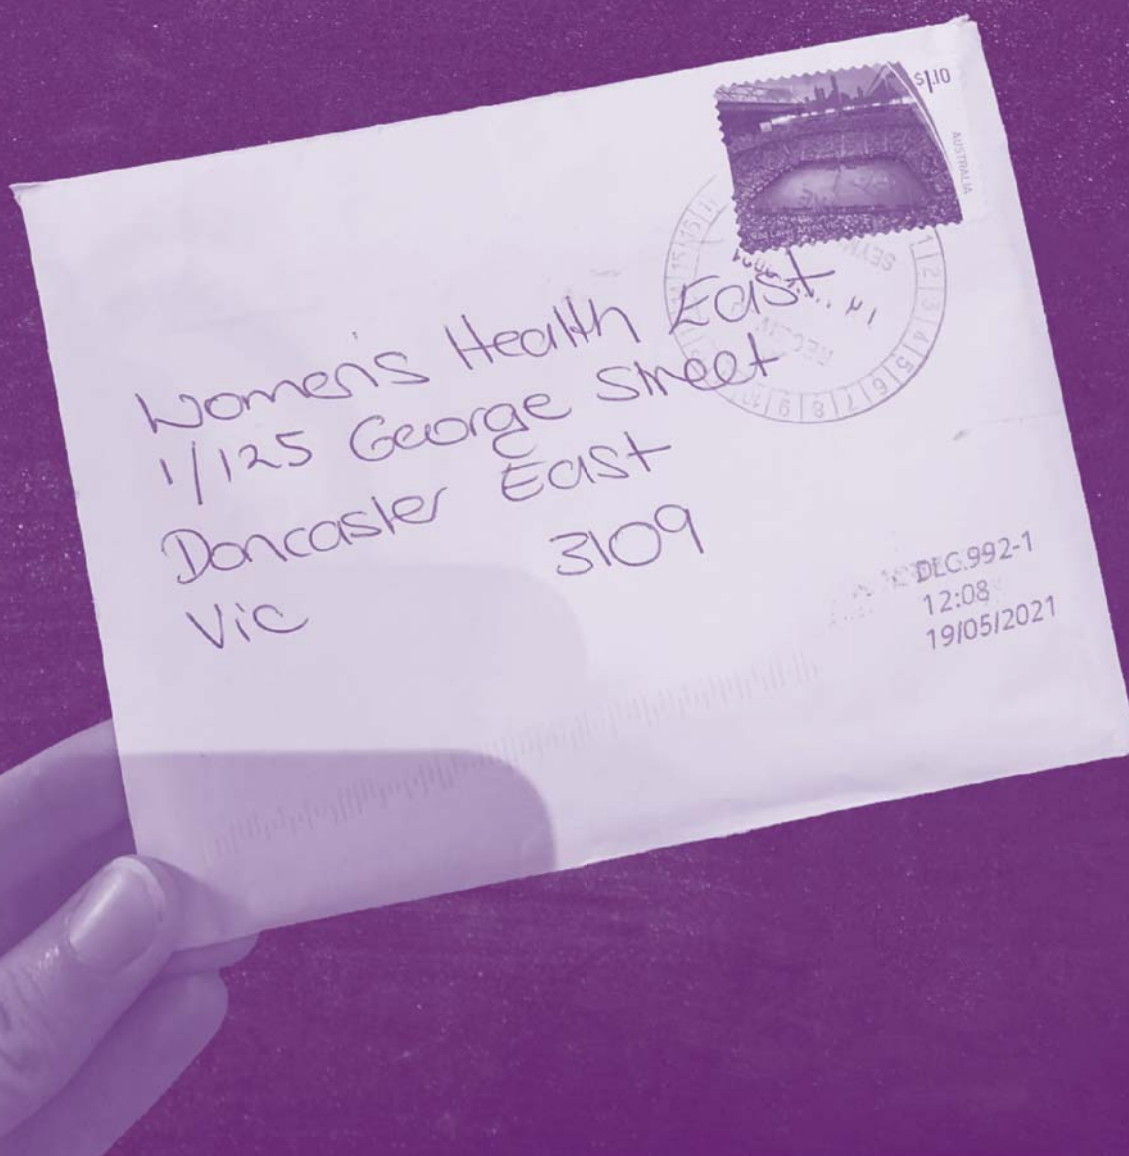 $1.10
AUSTRALIA
Women's Health East
1/125 George Street
Doncaster East
Vic 3109
DLC.992-1
12:08
19/05/2021
1 2 3 4 5 6 7 8 9 10
15 16